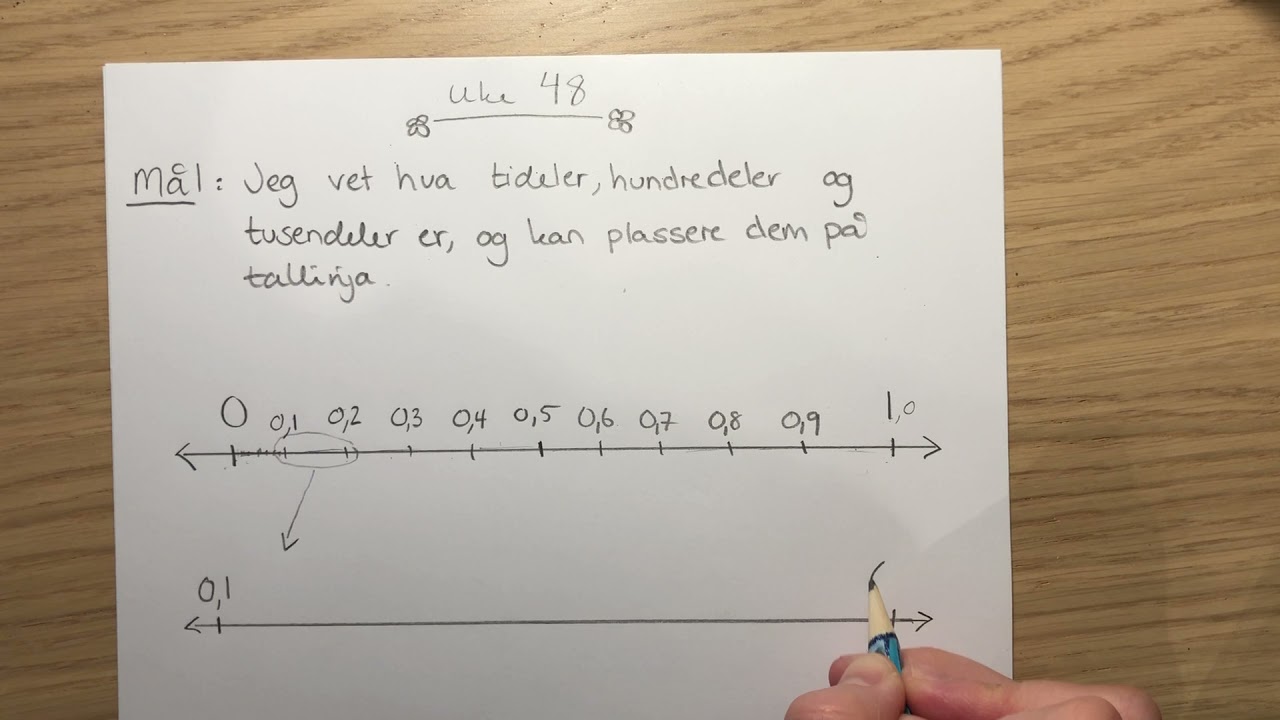 uke 48
Mål: Jeg vet hva tideler, hundredeler og
tusendeler er, og kan plassere dem på
tallinja.
0 0,1 0,2 0,3 0,4 0,5 0,6 0,7 0,8 0,9 1,0
0,1